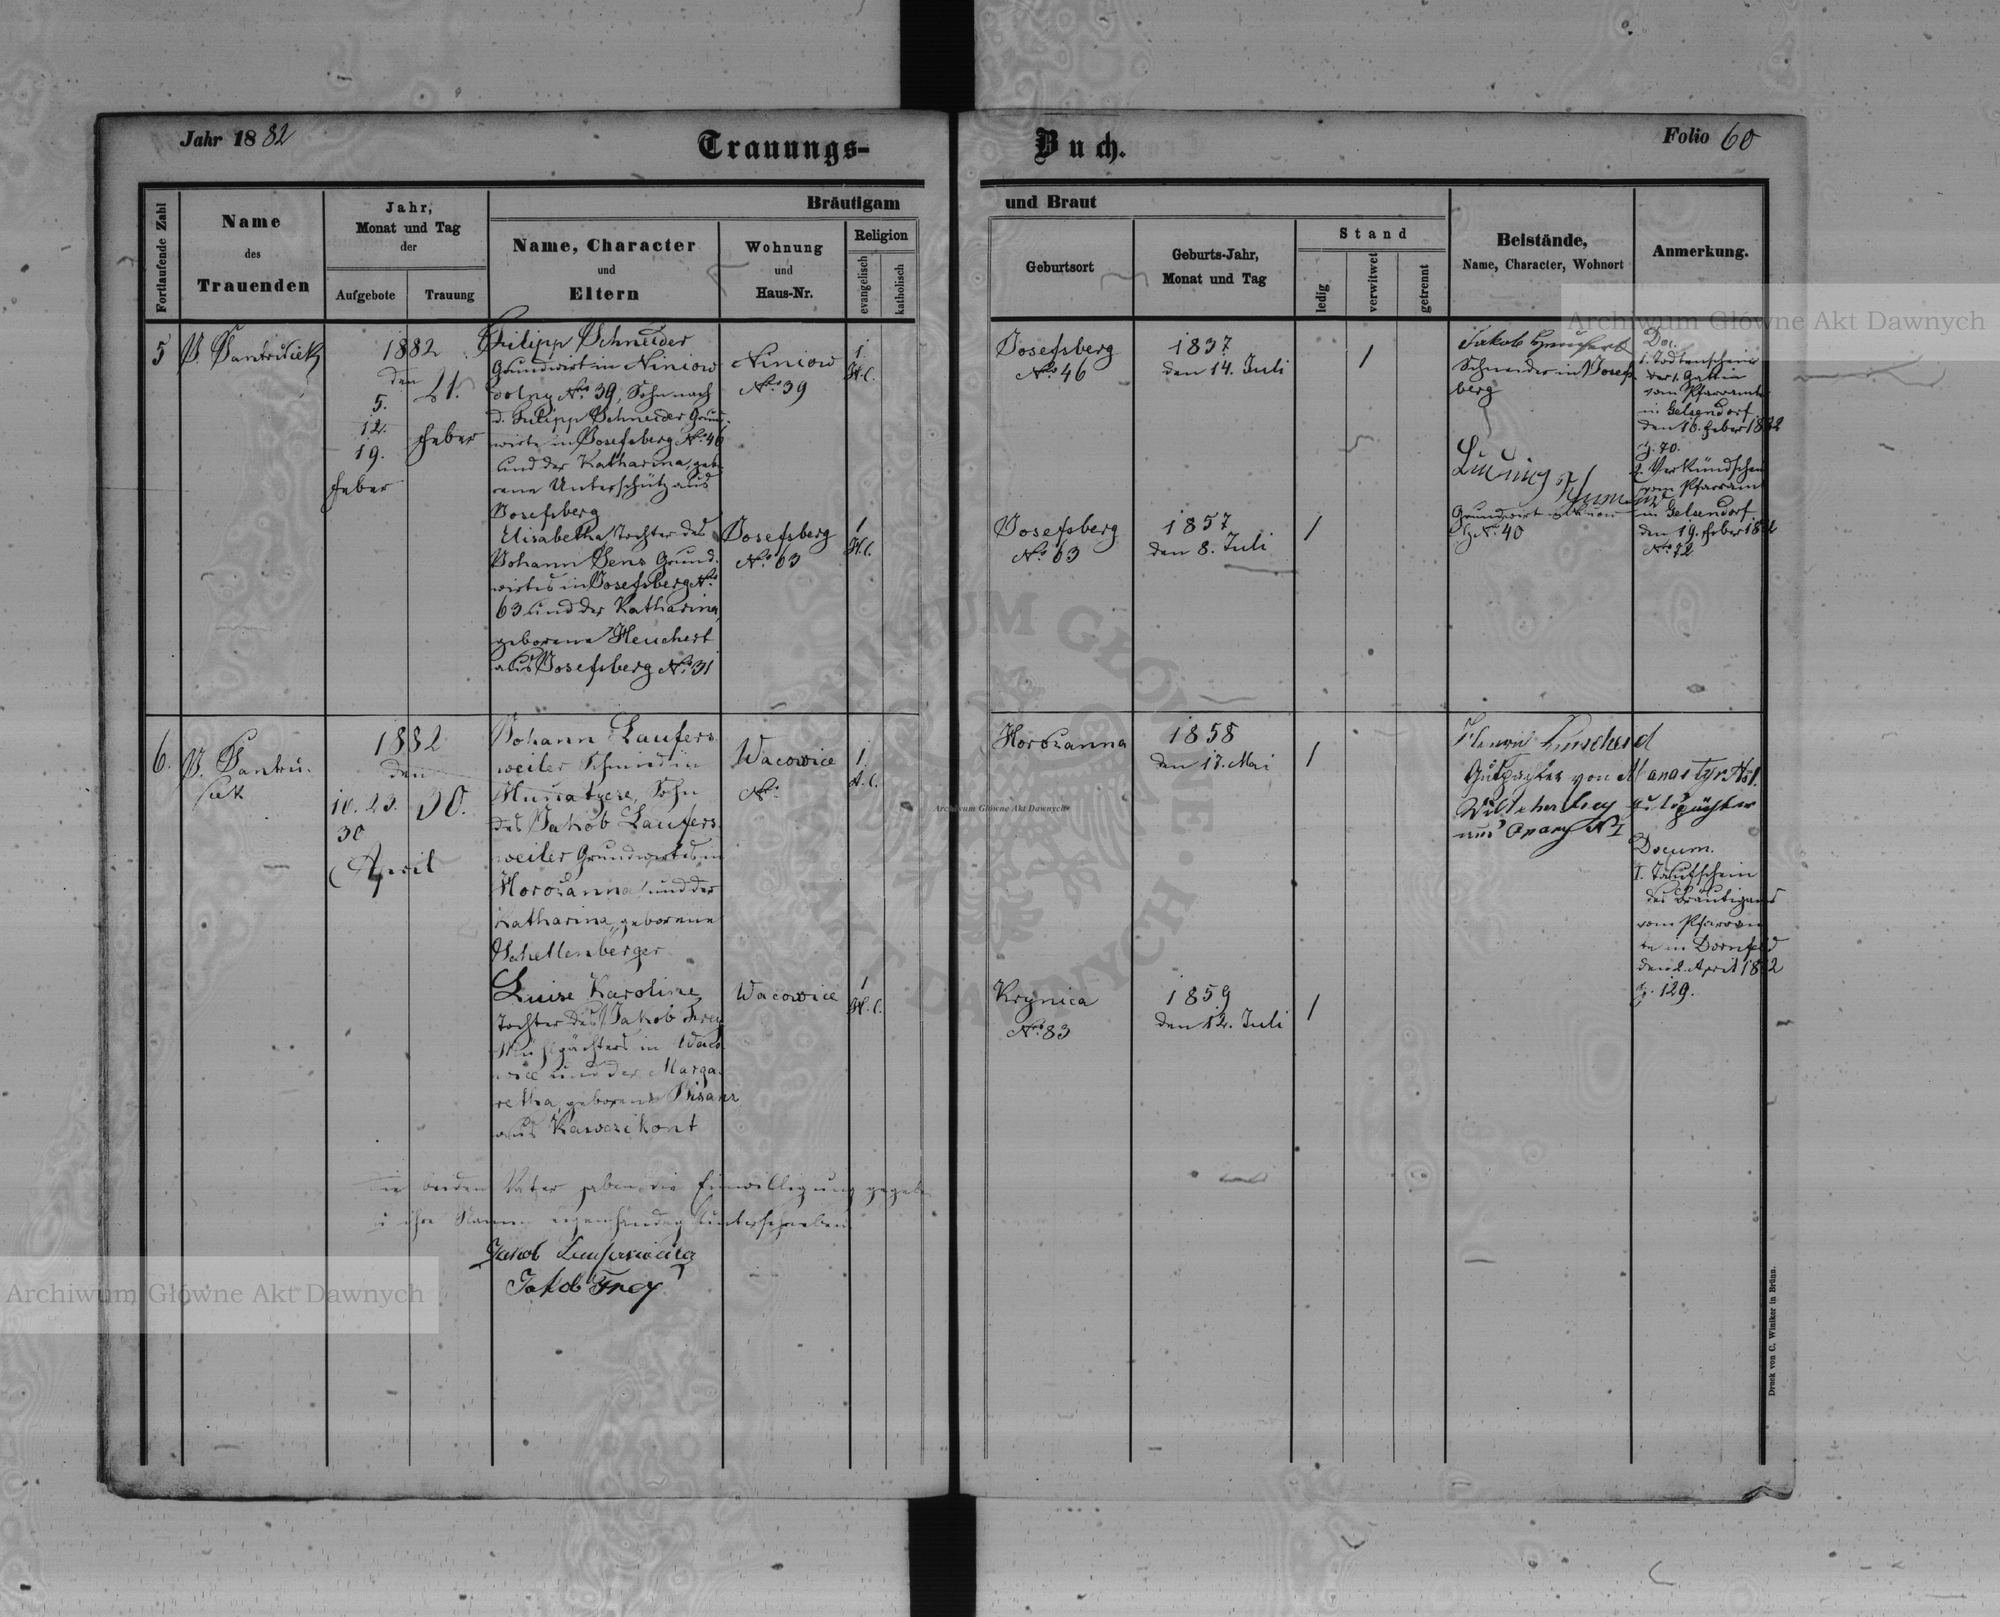 Jahr 1882
Trauungs-
Buch.
Folio 60
Fortlaufende Zahl
Name
des
Trauenden
Jahr,
Monat und Tag
der
Aufgebote
Trauung
Bräutigam
Name, Character
und
Eltern
Wohnung
und
Haus-Nr.
Religion
evangelisch
katholisch
und Braut
Geburtsort
Geburts-Jahr,
Monat und Tag
Stand
ledig
verwitwet
getrennt
Beistände,
Name, Character, Wohnort
Anmerkung.
5
1882
den
5.
12.
19.
Feber
21.
Feber
Filipp Schneider
Grundwirt in Niniow
dolny No. 39, Sohn nach
d. Filipp Schneider Grund-
wirte in Josefsberg No. 46
und der Katharina, geb-
rene Unterschütz aus
Josefsberg
Elisabetha Tochter des
Johann Sens Grund-
wirtes in Josefsberg No.
63 und der Katharina,
geborene Heuchert
aus Josefsberg No. 31
Niniow
No. 39
Josefsberg
No. 63
1
H.C.
1
H.C.
Josefsberg
No. 46
Josefsberg
No. 63
1837
den 14. Juli
1857
den 8. Juli
1
1
Jakob
Schneider in Josefs-
berg
Ludwig
Grundwirt
No. 40
Doc.
1. Todtenschein
der 1. Gattin
vom Pfarramte
in Gelsendorf
den 16. Feber 1882
Z. 70.
2. Verkündschein
vom Pfarramt
in Gelsendorf
den 19. Feber 1882
No. 72
6.
1882
den
23.
30
April
30.
Johann Laufers-
weiler Schmied in
Sohn
des Jakob Laufers-
weiler Grundwirtes in
Horozanna und der
Katharina, geborene
Schellenberger
Luise Karoline
Tochter des Jakob Frey
Mühlpächters in Waco-
wice und der Marga-
retha, geborene Bisanz
aus
Wacowice
No.
Wacowice
1
A.C.
1
H.C.
Horozanna
Krynica
No. 83
1858
den 17. Mai
1859
den 12. Juli
1
1
Gutpächter von Manastyr No. 1.
Frey Gutspächter
aus Opary N I
Docum.
1. Taufschein
des Bräutigams
vom Pfarram-
te in Dornfeld
den 2. April 1882
Z. 129.
die beiden Väter haben die Einwilligung gegeben
u ihre Namen eigenhändig unterschrieben
Jakob Laufersweiler
Jakob Frey
Druck von C. Winiker in Brünn.
Archiwum Główne Akt Dawnych
Archiwum Główne Akt Dawnych
Archiwum Główne Akt Dawnych
ARCHIWUM GŁÓWNE AKT DAWNYCH